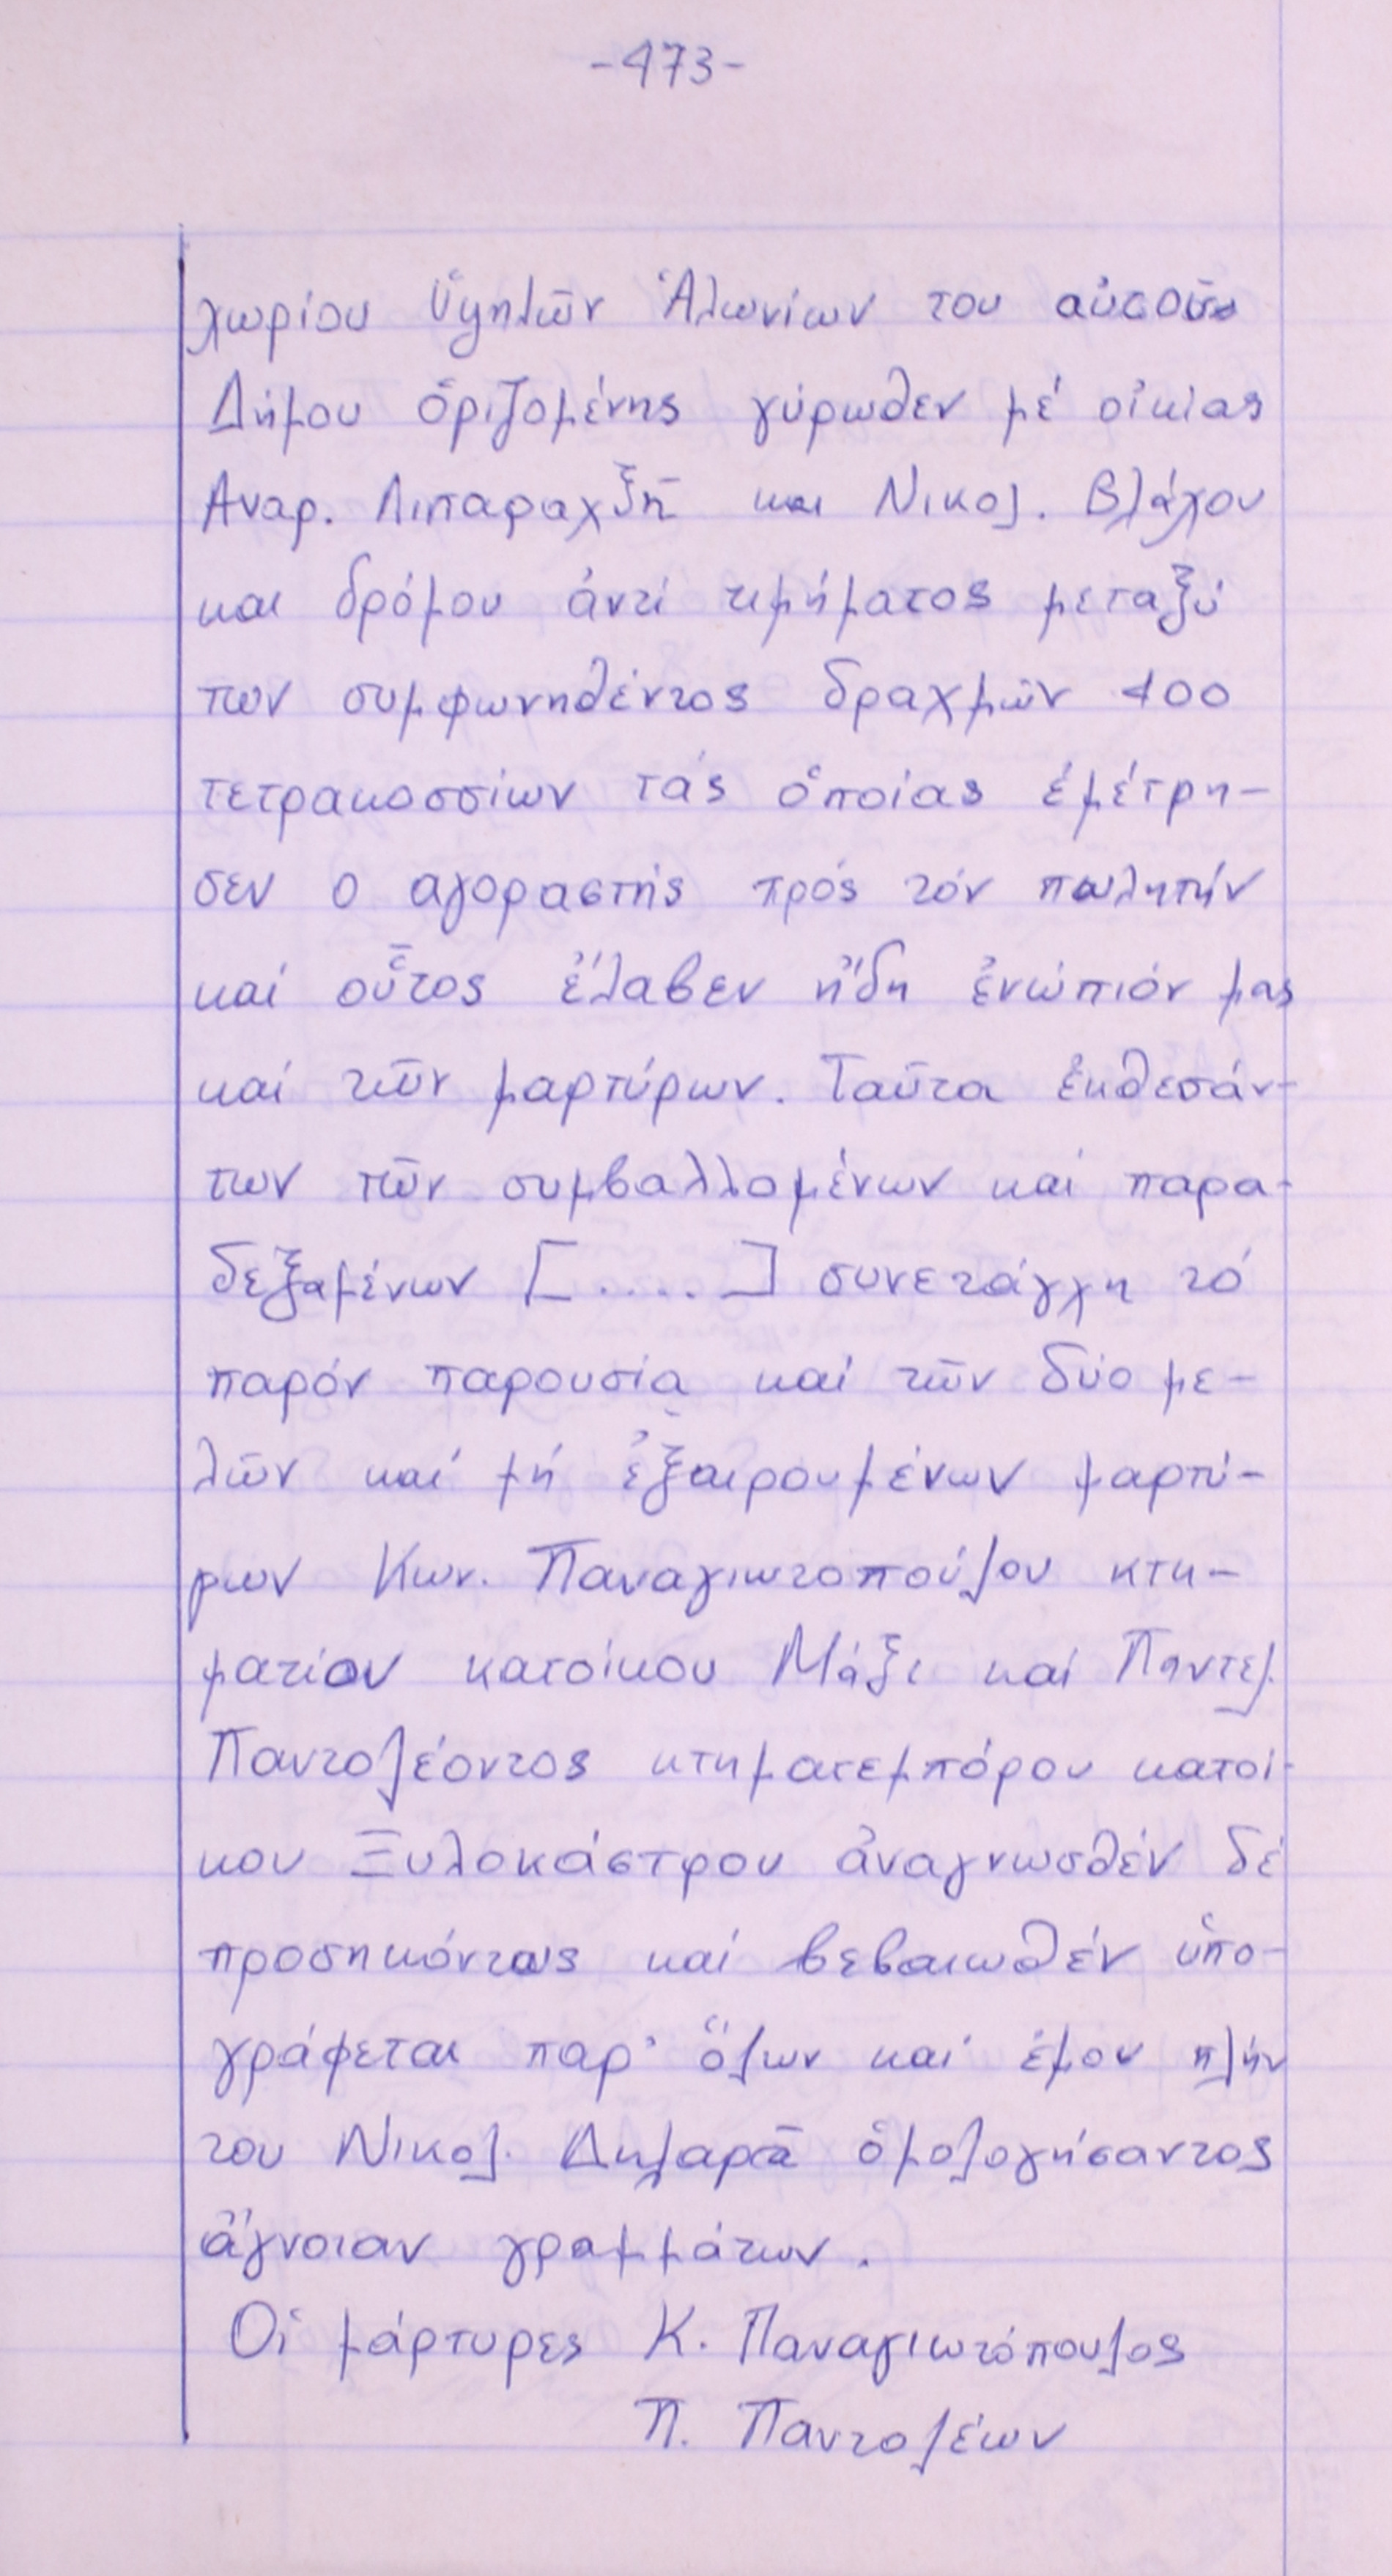 -473-
χωρίου Ὑψηλῶν Ἁλωνίων του αὐτοῦ
Δήμου ὁριζομένης γύρωθεν μέ οἰκίας
Αναρ. Λιπαραχζῆ και Νικολ. Βλάχου
και δρόμου ἀντί τιμήματος μεταξύ
των συμφωνηθέντος δραχμῶν 400
τετρακοσσίων τάς ὁποίας ἐμέτρη-
σεν ο αγοραστής πρός τόν πωλητήν
καί οὗτος ἔλαβεν ἤδη ἐνώπιόν μας
καί τῶν μαρτύρων. Ταῦτα ἐκθεσάν-
των τῶν συμβαλλομένων καί παρα-
δεξαμένων [.....] συνετάγχη τό
παρόν παρουσία καί τῶν δύο με-
λῶν καί μή ἐξαιρουμένων μαρτύ-
ρων Κων. Παναγιωτοπούλου κτη-
ματίον κατοίκου Μάζι καί Παντελ.
Παντολέοντος κτηματεμπόρου κατοί-
κου Ξυλοκάστρου ἀναγνωσθέν δέ
προσηκόντως καί βεβαιωθέν ὑπο-
γράφεται παρ' ὅλων και ἐμου πλήν
του Νικολ. Δηλαρᾶ ὁμολογήσαντος
ἄγνοιαν γραμμάτων.
Οἱ μάρτυρες Κ. Παναγιωτόπουλος
Π. Παντολέων